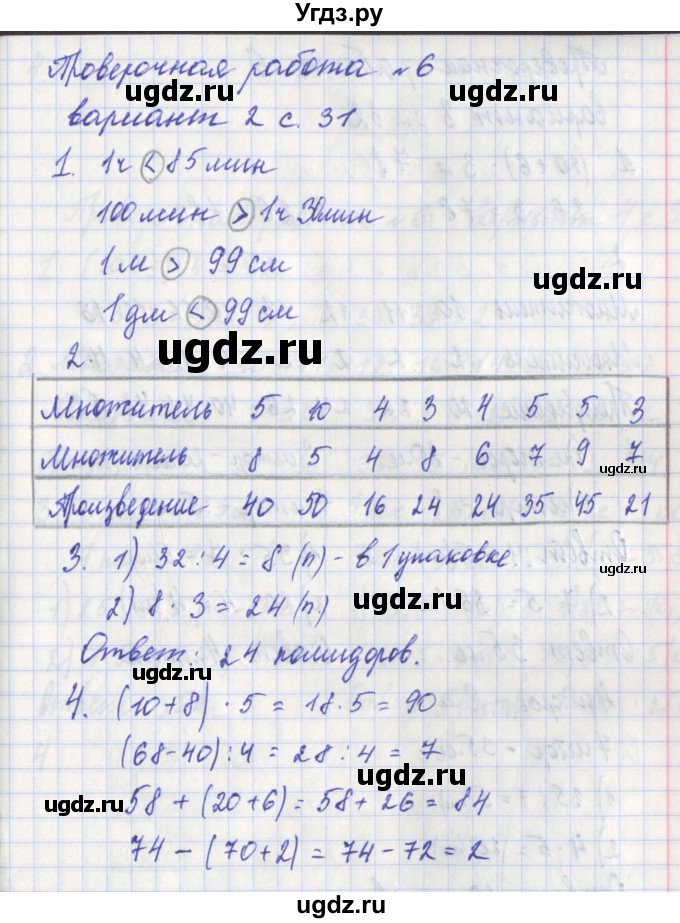 Угдз.ру
Проверочная работа №6
ugdz.ru ugdz.ru
вариант 2 с. 31
1. 1ч < 85 мин
100 мин > 1ч 30мин
1 м > 99 см
ugdz.ru
1 дм < 99 см
ugdz.ru
2.
Множитель 5 10 4 3 4 5 5 3
Множитель 8 5 4 8 6 7 9 7
ugdz.ru
Произведение 40 50 16 24 24 35 45 21
3. 1) 32 : 4 = 8 (п) - в 1 упаковке.
ugdz.ru
2) 8 · 3 = 24 (п.)
ugdz.ru
Ответ: 24 помидоров.
ugdz.ru
4. (10+8) · 5 = 18·5 = 90
ugdz.ru
(68-40) : 4 = 28 : 4 = 7
58 + (20+6) = 58 + 26 = 84
ugdz.ru ugdz.ru
74 - (70+2) = 74 - 72 = 2
ugdz.ru
ugdz.ru